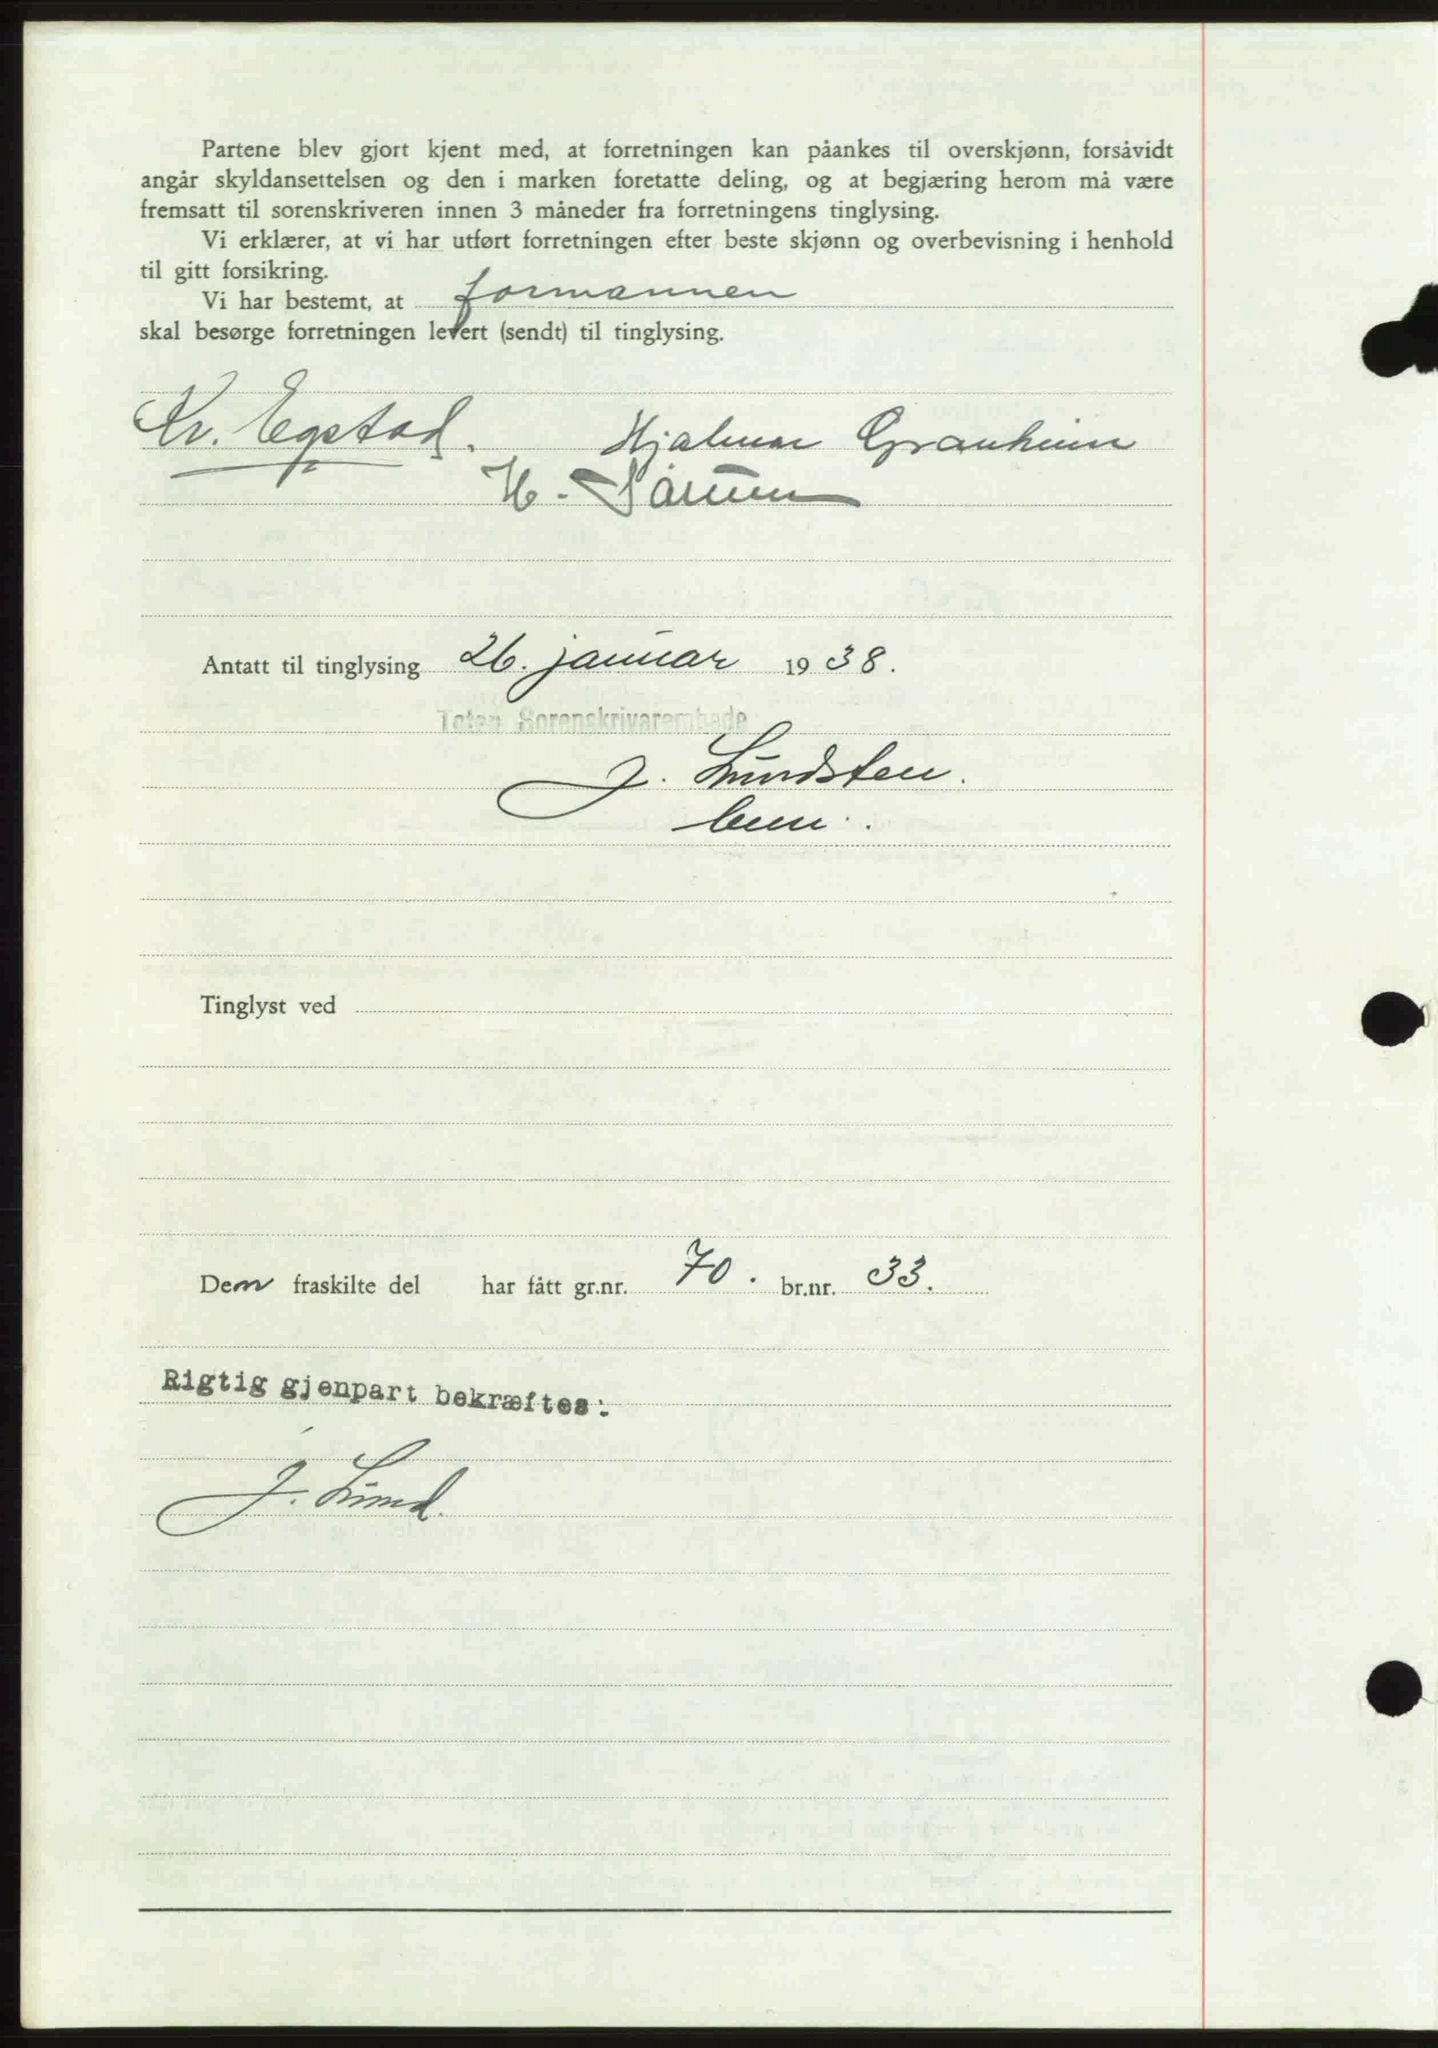 Partene blev gjort kjent med, at forretningen kan påankes til overskjønn, forsåvidt
angår skyldansettelsen og den i marken foretatte deling, og at begjæring herom må være
fremsatt til sorenskriveren innen 3 måneder fra forretningens tinglysing.
Vi erklærer, at vi har utført forretningen efter beste skjønn og overbevisning i henhold
til gitt forsikring.
Vi har bestemt, at formannen
skal besørge forretningen levert (sendt) til tinglysing.
Kr. Egstad. Hjalmar Granheim
H.
Antatt til tinglysing 26. januar 1938.
Toten Sorenskriverembede
J. Lundsten.
Tinglyst ved
Den fraskilte del har fått gr.nr. 70. br.nr. 33.
Rigtig gjenpart bekræftes:
J. Lund.